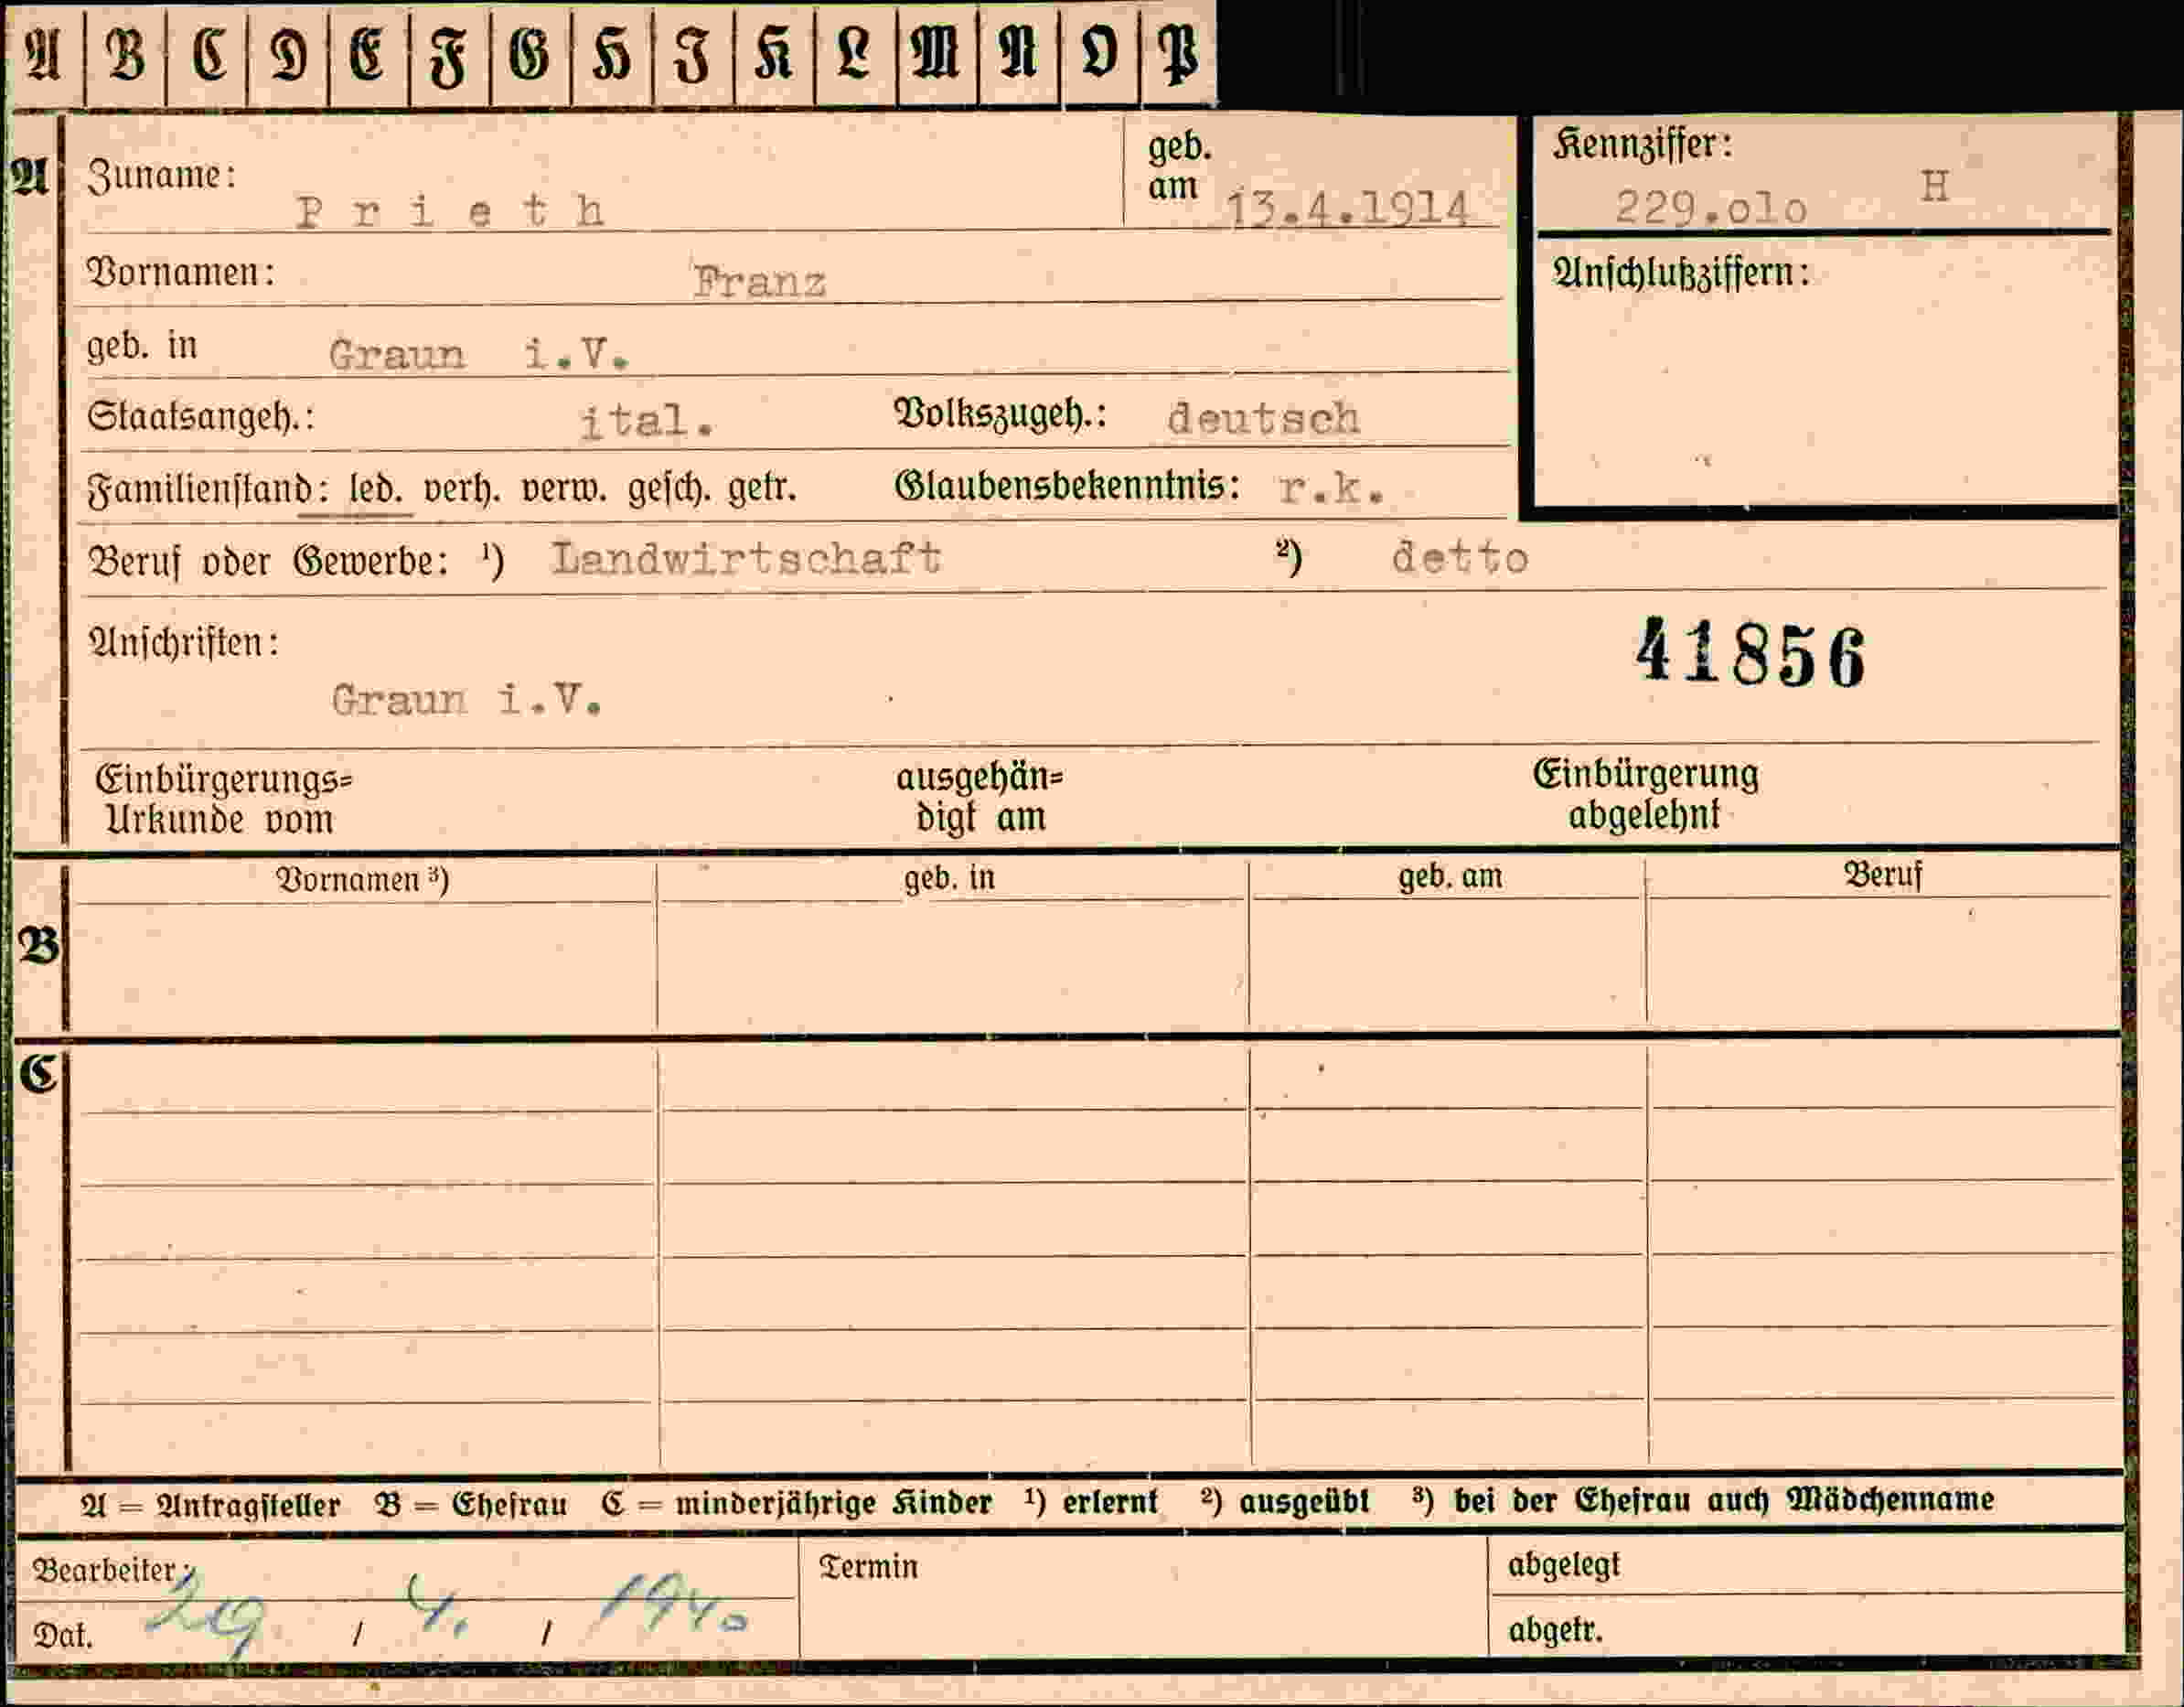 A B C D E F G H I K L M N O P
A Zuname: Prieth geb. am 13.4.1914 Kennziffer: 229.olo H
Vornamen: Franz Anschlußziffern:
geb. in Graun i.V.
Staatsangeh.: ital. Volkszugeh.: deutsch
Familienstand: led. verh. verw. gesch. getr. Glaubensbekenntnis: r.k.
Beruf oder Gewerbe: ¹) Landwirtschaft ²) detto
Anschriften: 41856
Graun i.V.
Einbürgerungs= ausgehän= Einbürgerung
Urkunde vom digt am abgelehnt
Vornamen ³) geb. in geb. am Beruf
B
C
A = Antragsteller B = Ehefrau C = minderjährige Kinder ¹) erlernt ²) ausgeübt ³) bei der Ehefrau auch Mädchenname
Bearbeiter: Termin abgelegt
Dat. 29 / 4. / 1940 abgetr.